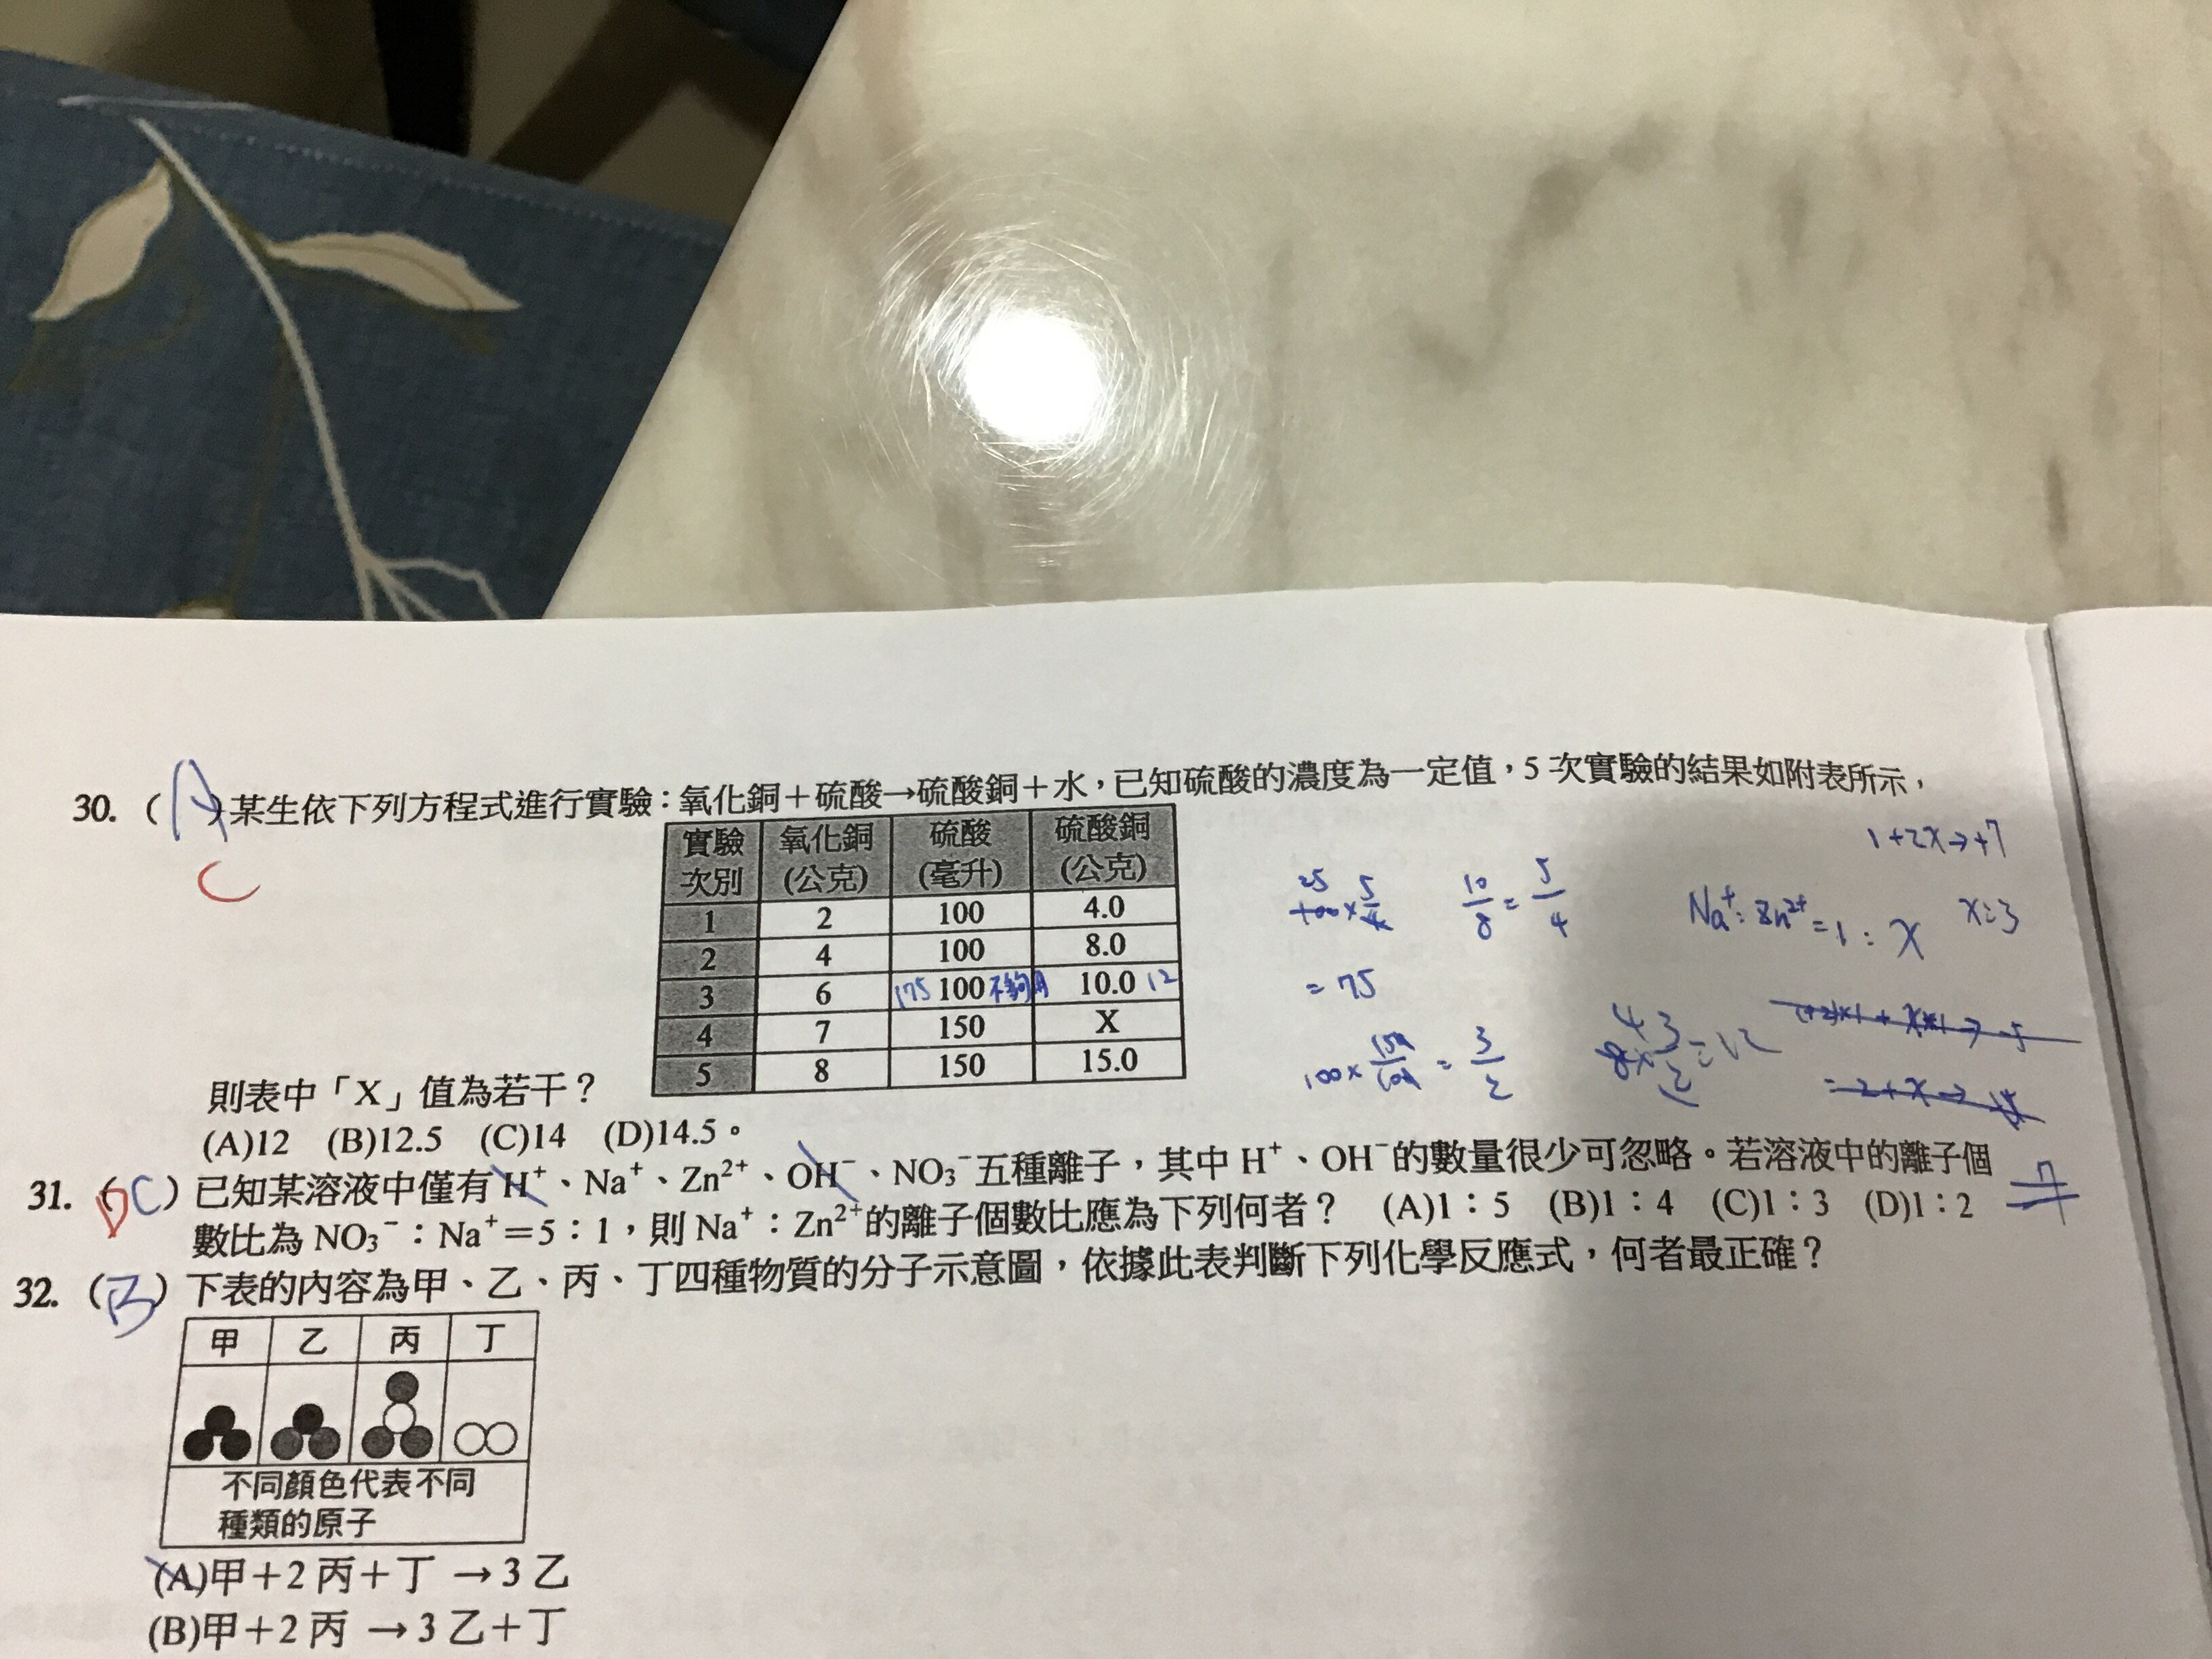 30. (A)某生依下列方程式進行實驗：氧化銅＋硫酸→硫酸銅＋水，已知硫酸的濃度為一定值，5 次實驗的結果如附表所示，
C
實驗次別 氧化銅(公克) 硫酸(毫升) 硫酸銅(公克)
1 2 100 4.0
2 4 100 8.0
3 6 175 100 不夠用 10.0 12
4 7 150 X
5 8 150 15.0
1+2x→+7
25
100×5/4
10/8=5/4
Na⁺:Zn²⁺=1:x x=3
=75
100×150/100=3/2
4
8×3/2=12
則表中「X」值為若干？
(A)12 (B)12.5 (C)14 (D)14.5。
31. (DC) 已知某溶液中僅有 H⁺、Na⁺、Zn²⁺、OH⁻、NO₃⁻五種離子，其中 H⁺、OH⁻的數量很少可忽略。若溶液中的離子個
數比為 NO₃⁻：Na⁺＝5：1，則 Na⁺：Zn²⁺的離子個數比應為下列何者？ (A)1：5 (B)1：4 (C)1：3 (D)1：2
32. (B) 下表的內容為甲、乙、丙、丁四種物質的分子示意圖，依據此表判斷下列化學反應式，何者最正確？
甲 乙 丙 丁
不同顏色代表不同
種類的原子
(A)甲＋2 丙＋丁 →3 乙
(B)甲＋2 丙 →3 乙＋丁